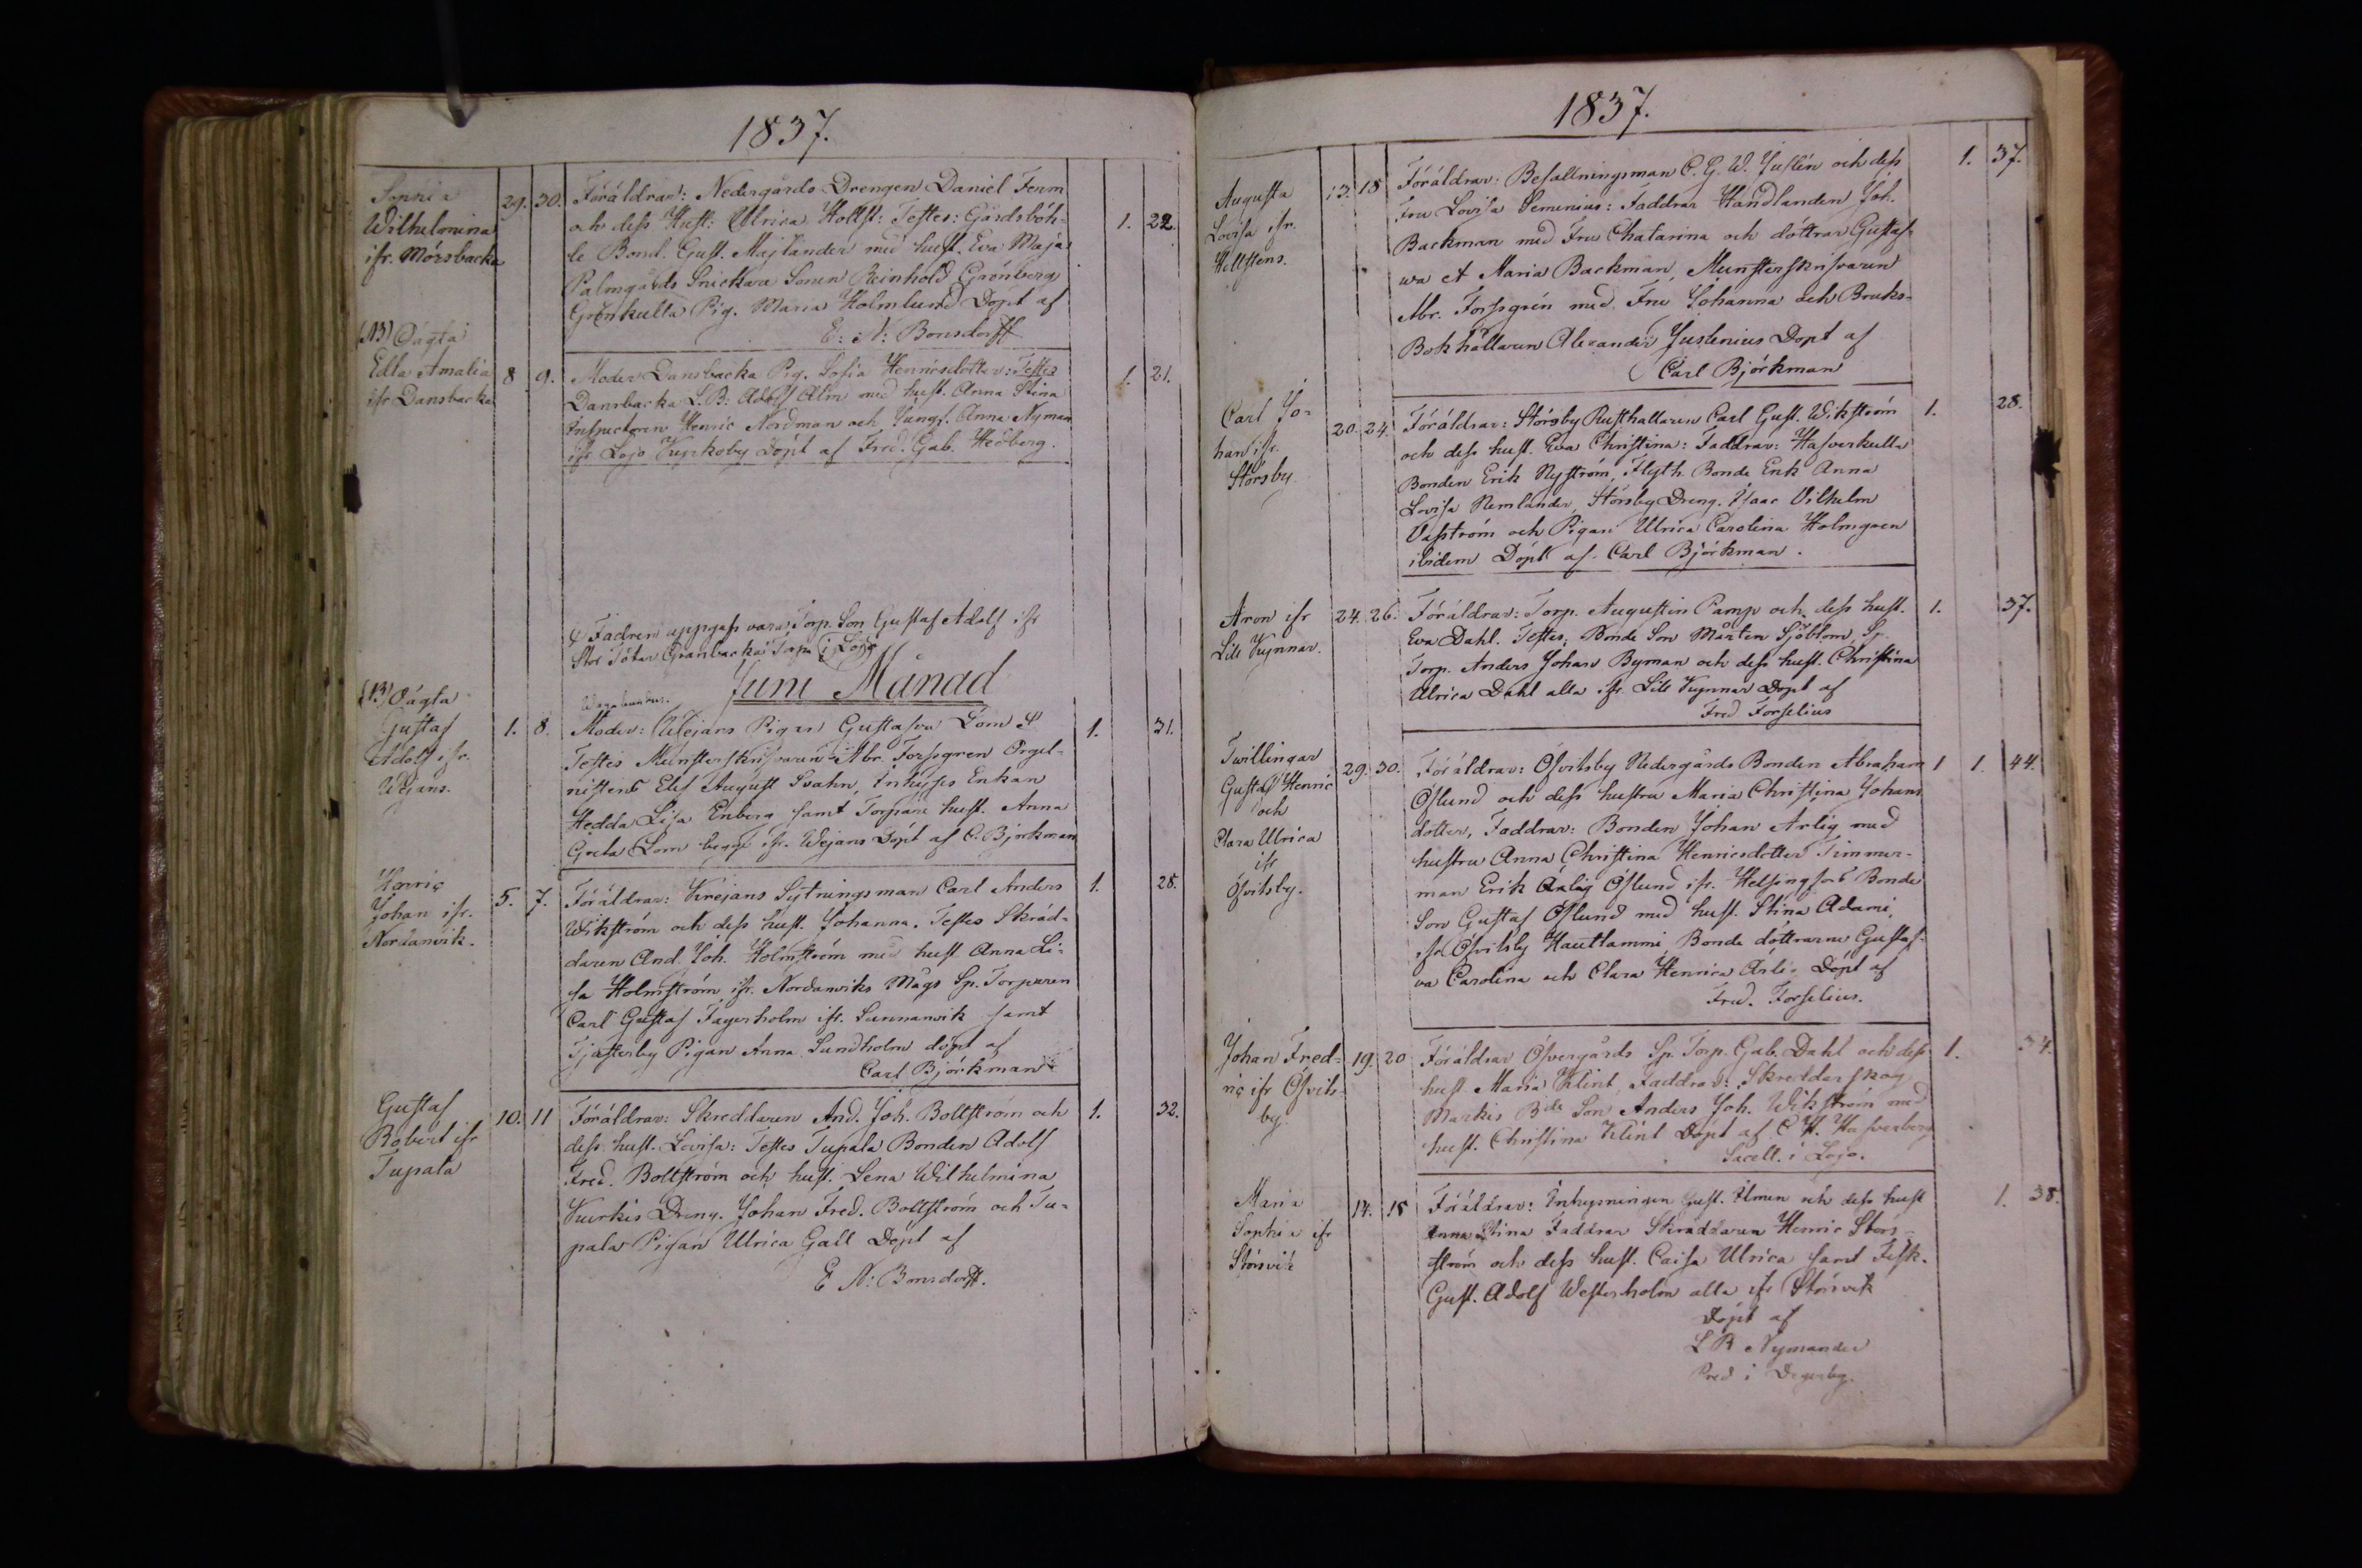 1837.
Sophia
Wilhelmina
ifr. Mörsbacka
29. 30.
Föräldrar: Nedergårds Drengen Daniel Ferm
och dess Hust: Ulrica Hollst: Testes: Gårdsböh-
le Bond. Gust. Majlander med hust. Eva Maja
Palmgårds Snickare Sonen Reinhold Grönberg
Grönkulla Pig. Maria Holmlund Döpt af
E: N: Bonsdorff
1. 22.
(N3) Oägta
Edla Amalia
ifr Dansbacka
8 9.
Moder Dansbacka Pig. Sofia Henricsdotter: Testes
Dansbacka L. B: Adolf Alm med hust. Anna Stina
Inspectoren Henric Nordman och Jungf. Anna Nyman
ifr Lojo Kyrkoby Döpt af Fred. Gab. Hedberg.
1. 21.
Fadren uppgafs vara Torp. Son Gustaf Adolf ifr
Stor Tötar Granbacka Torp i Lojo
Juni Månad
(N3) Oägta
Gustaf
Adolf ifr.
Wejans.
1. 8.
Moder: Wejans Pigan Gustafva Lom
Testes Munsterskrifvaren Abr. Forssgren Orgel-
nistens Elef August Svahn, Inhyses Enkan
Hedda Lisa Enberg samt Torpare hust. Anna
Greta Lom begge ifr. Wejans Döpt af C. Björkman
1. 31.
Henric
Johan ifr.
Nordanvik.
5. 7.
Föräldrar: Krejans Sytningsman Carl Anders
Wikström och dess hust. Johanna. Testes Skräd-
daren And. Joh. Holmström med hust Anna Li-
sa Holmström ifr. Nordanviks Mågs Sp. Torparen
Carl Gustaf Fagerholm ifr. Sunnanvik samt
Tjusterby Pigan Anna Sundholm döpt af
Carl Björkman
1. 28.
Gustaf
Robert ifr
Tupala
10. 11
Föräldrar: Skreddaren And. Joh. Boltström och
dess hust. Lovisa: Testes Tupala Bonden Adolf
Fred. Boltström och hust. Lena Wilhelmina
Kurkis Dreng. Johan Fred. Boltström och Tu-
pala Pigan Ulrica Gäll Döpt af
E N: Bonsdorff.
1. 32.
1837.
Augusta
Lovisa ifr.
Hellstens.
13. 18
Föräldrar: Befallningsman C. G. W. Juslén och dess
Fru Lovisa Semenius: Faddrar Handlanden Joh.
Backman med Fru Chatarina och döttrar Gustaf-
wa et Maria Backman, Munsterskrifvaren
Abr. Forssgrén med Fru Johanna och Bruks-
Bokhållaren Alexander Juslenius Döpt af
Carl Björkman
1. 37.
Carl Jo-
han ifr.
Störsby
20. 24.
Föräldrar: Störsby Rusthallaren Carl Gust. Wikström
och dess hust. Eva Christina: Faddrar: Hafverkulla
Bonden Erik Nyström, Flyth Bonde Enk Anna
Lovisa Nemlander, Störsby Dreng. Isaac Vilhelm
Vasström och Pigan Ulrica Carolina Holmgren
ibidem Döpt af. Carl Björkman.
1. 28.
Aron ifr
Lill Kynnar.
24. 26.
Föräldrar: Torp. Augustin Pamp och dess hust.
Eva Dahl. Testes: Bonde Son Mårten Sjöblom, Sp.
Torp. Anders Johan Byman och dess hust. Christina
Ulrica Dahl alla ifr. Lill Kynnar Döpt af
Fred Forselius
1. 37.
Twillingar
Gustaf Henric
och
Clara Ulrica
ifr
Öfvitsby.
29. 30.
Föräldrar: Öfvitsby Nedergårds Bonden Abraham
Öslund och dess hustru Maria Christina Johans
dotter, Faddrar: Bonden Johan Ärlig med
hustru Anna Christina Henricsdotter Timmer-
man Erik Ärlig Öslund ifr. Helsingfors Bonde
Son Gustaf Öslund med hust. Stina Adami,
ifr Öfvitsby Hautlammi Bonde döttrarne Gustaf-
va Carolina och Clara Henrica Ärlig Döpt af
Fred. Forselius.
1 1. 44.
Johan Fred-
ric ifr Öfvits-
by.
19. 20
Föräldrar Öfvergårds Sp. Torp. Gab. Dahl och dess
hust Maria Klint, Faddrar: Skreddarskog
Markis Bde Son Anders Joh. Wikström med
hust. Christina Klint Döpt af C H. Hafverberg
Sacell. i Lojo.
1. 34.
Maria
Sophia ifr
Störsvik
14. 15
Föräldrar: Inhysningen Gust. Ilmen och dess hust
Anna Stina Faddrar Skräddaren Henric Stors-
ström och dess hust. Caisa Ulrica samt Fisk.
Gust. Adolf Westerholm alla ifr Störsvik
Döpt af
L R Nymander
Pred i Degerby.
1. 38.